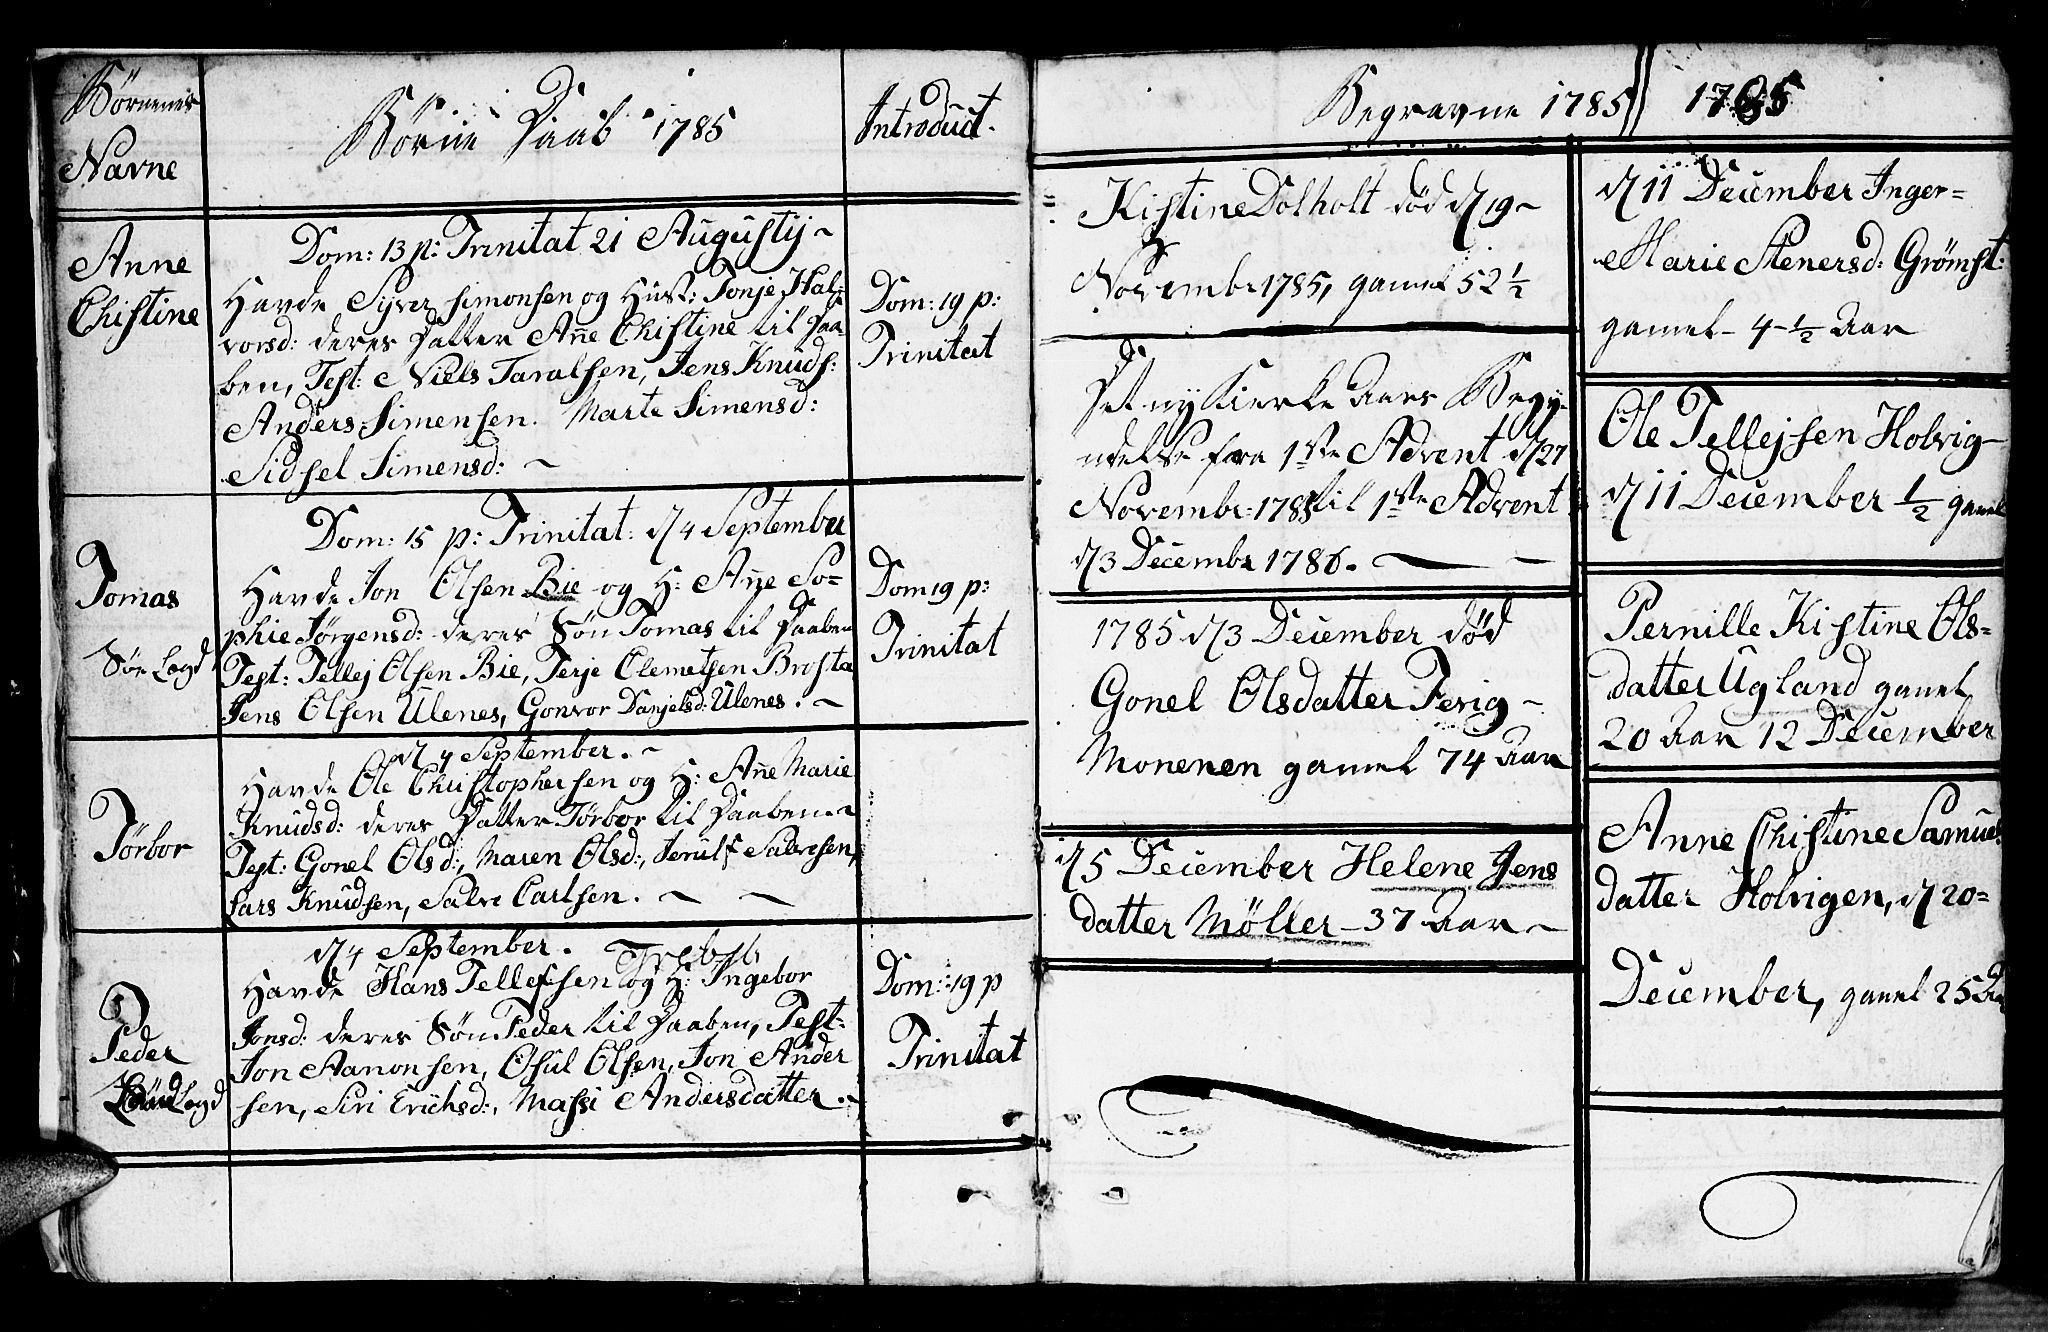 Børnenes
Navne
Børne Daab 1785
Introduct.
Anne
Christine
Dom: 13 p: Trinitat 21 Augustij ~
Havde Syver Simonsen og Hust: Tonje Hal=
vorsd: deres Datter Añe Christine til Daa=
ben, Test: Niels Taralsen, Jens Knuds:
Anders Simensen. Marte Simensd:
Sidsel Simensd: ~
Dom: 19 p:
Trinitat
Tomas
Søe Lagd
Dom: 15 p: Trinitat: d 4 September
Havde Jon Olsen Bie og H: Añe So=
phie Jørgensd: deres Søn Tomas til Daaben
Test: Tellej Olsen Bie, Terje Clemetsen Brosta
Jens Olsen Ulenes, Gonvor Danjelsd: Ulenes. ~
Dom 19 p:
Trinitat
Torbor
d 4 September. ~
Havde Ole Christophersen og H: Añe Marie
Knudsd: deres Datter Torbor til Daaben ~
Test: Gonel Olsd:, Maren Olsd:, Jerulf Salvesen,
Lars Knudsen, Salve Carlsen. ~ ~
Peder
Lagd
d 4 September.
Havde Hans Tellefsen og H: Ingebor
Jonsd: deres Søn Peder til Daaben, Test:
Jon Aanonsen, Osul Olsen, Jon Ander
sen, Siri Erichsd:, Massi Andersdatter. ~
Dom: 19 p
Trinitat
Begravne 1785
1785
Kistine Dolholt død d 19 ~
Novembr 1785, gamel 52 1/2
Det ny Kierke Aars Begy=
ndelse fra 1ste Advent d 27
Novembr: 1785 til 1ste Advent
d 3 Decembr 1786. ~
1785 d 3 December død
Gonel Olsdatter Terig ~
Monenen gamel 74 Aar
d 5 December Helene Jens
datter Møller – 37 Aar ~
d 11 December Inger=
Marie Stenersd: Grømst:
gamel – 4 – 1/2 Aar
Ole Tellejsen Holvig ~
d 11 December 1/2 gamel
Pernille Kistine Ols=
datter Ugland gamel
20 Aar 12 December
Anne Christine Samuels
datter Holvigen, d 20=
December, gamel 25 Aar